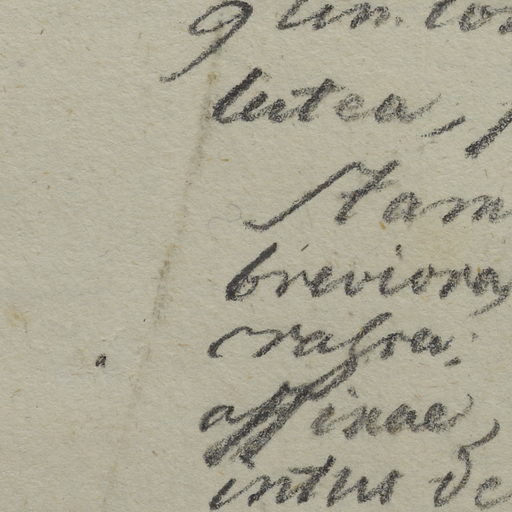 9 lin. lon
lutea,
Stam
breviora,
crassa:
affinae,
intus de